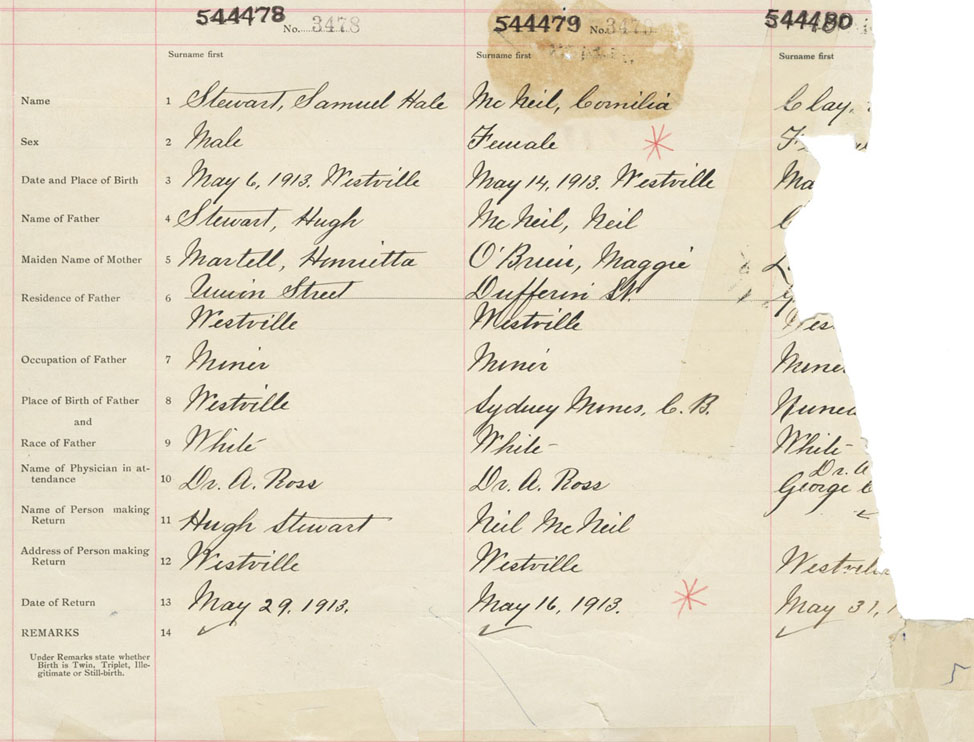 544478 No. 3478 544479 No. 3479 544480
Surname first Surname first Surname first
Name 1 Stewart, Samuel Hale Mc Neil, Cornilia Clay,
Sex 2 Male Female
Date and Place of Birth 3 May 6, 1913. Westville May 14, 1913. Westville Ma
Name of Father 4 Stewart, Hugh McNeil, Neil C
Maiden Name of Mother 5 Martell, Henrietta O'Brien, Maggie
Residence of Father 6 Union Street Dufferin St.
Westville Westville Wes
Occupation of Father 7 Miner Miner Miner
Place of Birth of Father 8 Westville Sydney Mines, C. B.
and
Race of Father 9 White White White
Name of Physician in at-
tendance 10 Dr. A. Ross Dr. A. Ross Dr. A
Name of Person making George
Return 11 Hugh Stewart Neil McNeil
Address of Person making
Return 12 Westville Westville Westville
Date of Return 13 May 29, 1913. May 16, 1913. May 31, 1
REMARKS 14
Under Remarks state whether
Birth is Twin, Triplet, Ille-
gitimate or Still-birth.
5